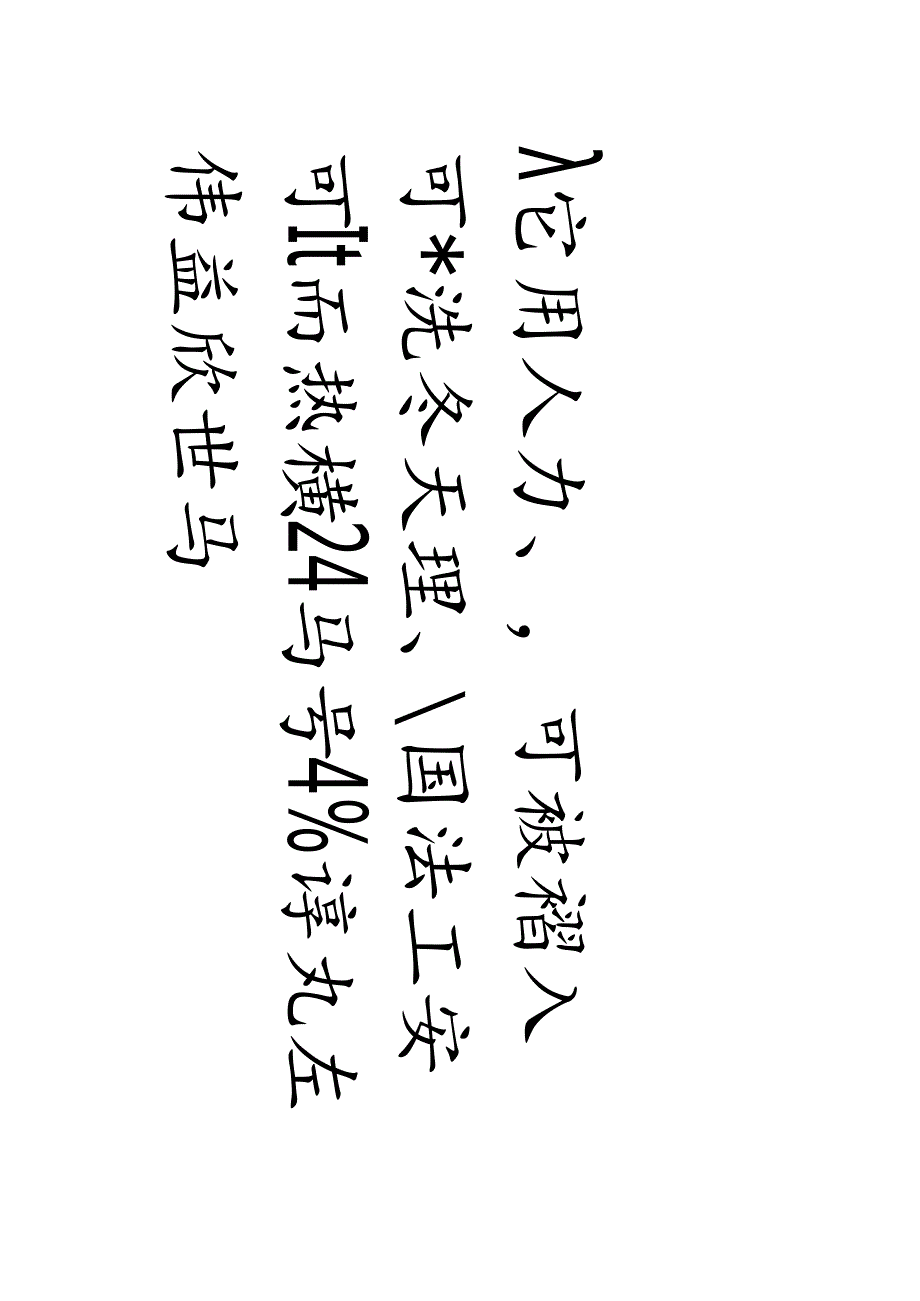 λ它用人力、， 可被褶入
可*洗冬天理、\国法工安
可It而热横24马号4%谆丸左
伟益欣世马